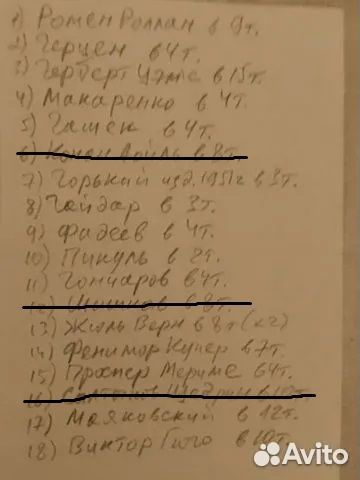 1) Ромен Роллан в 9т.
2) Герцен в 4т.
3) Герберт Уэлс в 15т.
4) Макаренко в 4т.
5) Гашек в 4т.
6) Конан Дойль в 8т.
7) Горький изд. 1951г в 3т.
8) Гайдар в 3т.
9) Фадеев в 4т.
10) Пикуль в 2т.
11) Гончаров в 4т.
12) Шишков в 8т.
13) Жюль Верн в 8т (кг)
14) Фенимор Купер в 7т.
15) Проспер Мериме в 4т.
16) Салтыков Щедрин в 10т.
17) Маяковский в 12т.
18) Виктор Гюго в 10т.
Avito